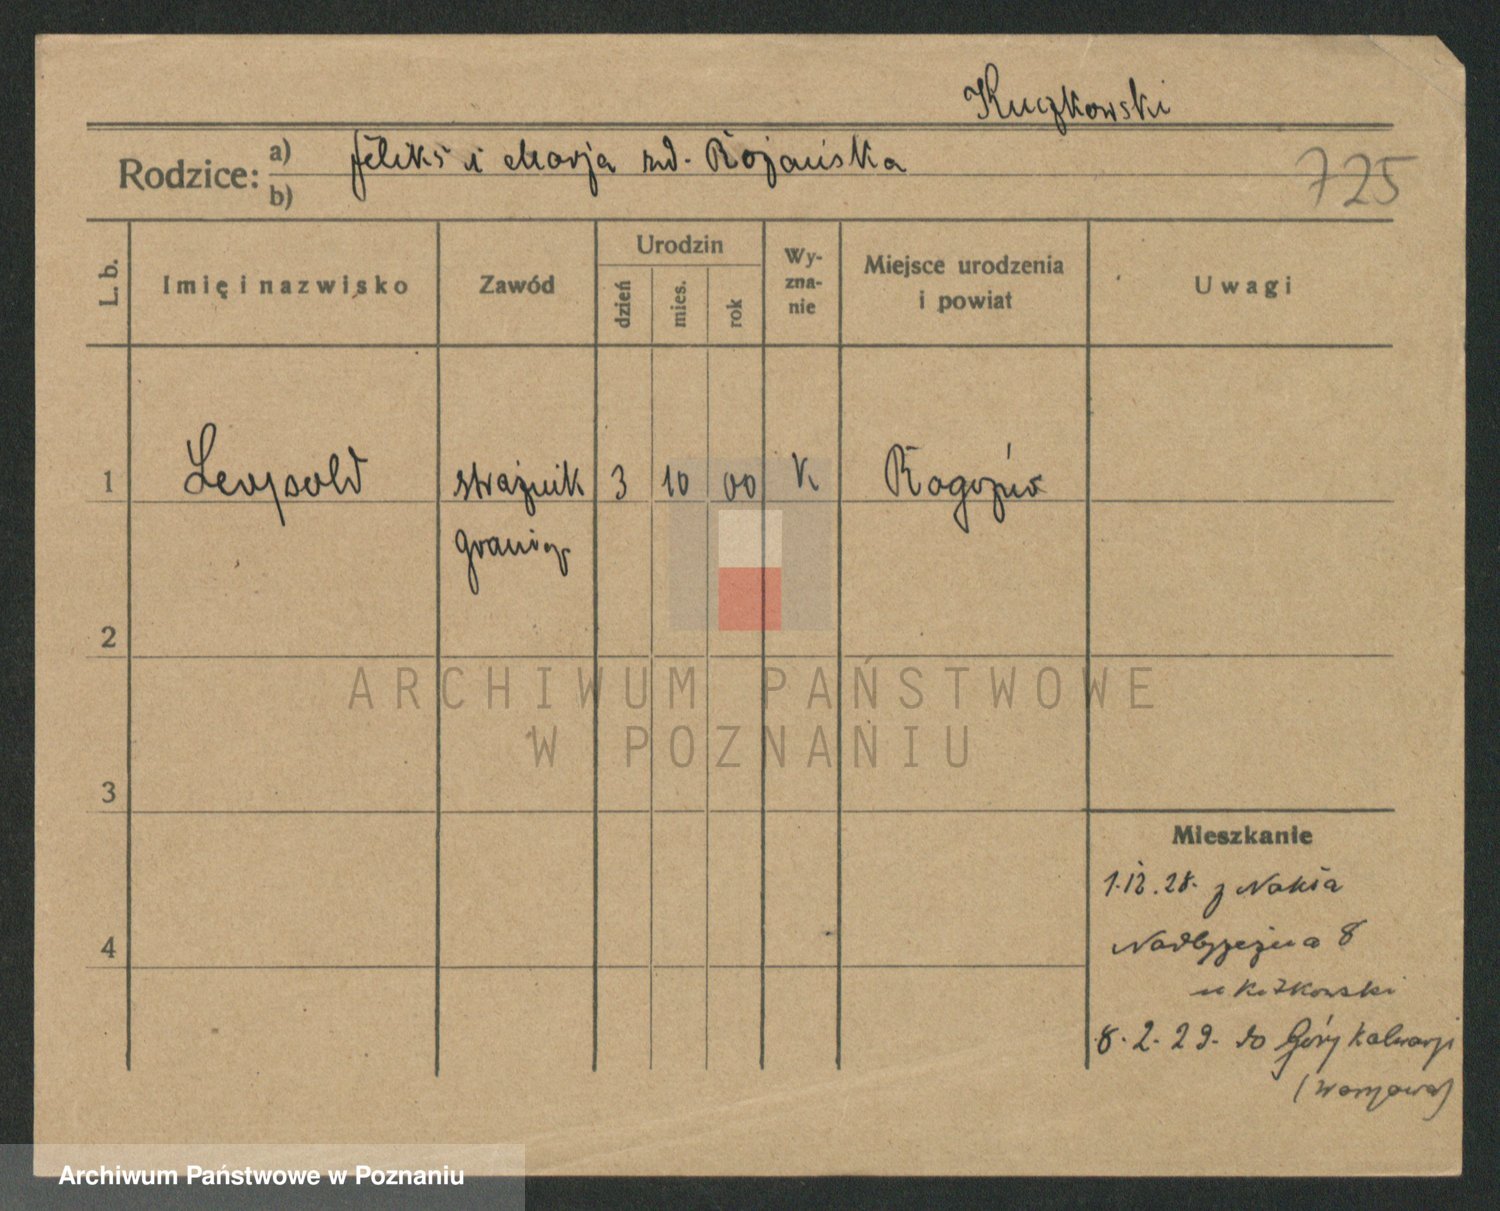 Kuczkowski
Rodzice: a) Feliks i Marja
b)
725
L. b.
Imię i nazwisko
Zawód
Urodzin
dzień
mies.
rok
Wy-
zna-
nie
Miejsce urodzenia
i powiat
Uwagi
1 Leopold strażnik 3 10 00 K Rogoźno
granicz
2
ARCHIWUM PAŃSTWOWE
W POZNANIU
3
Mieszkanie
1.12.28. z Nakła
Nadbrzeżna 8
4
8.2.29. do Góry Kalwarji
(Warszawa)
Archiwum Państwowe w Poznaniu